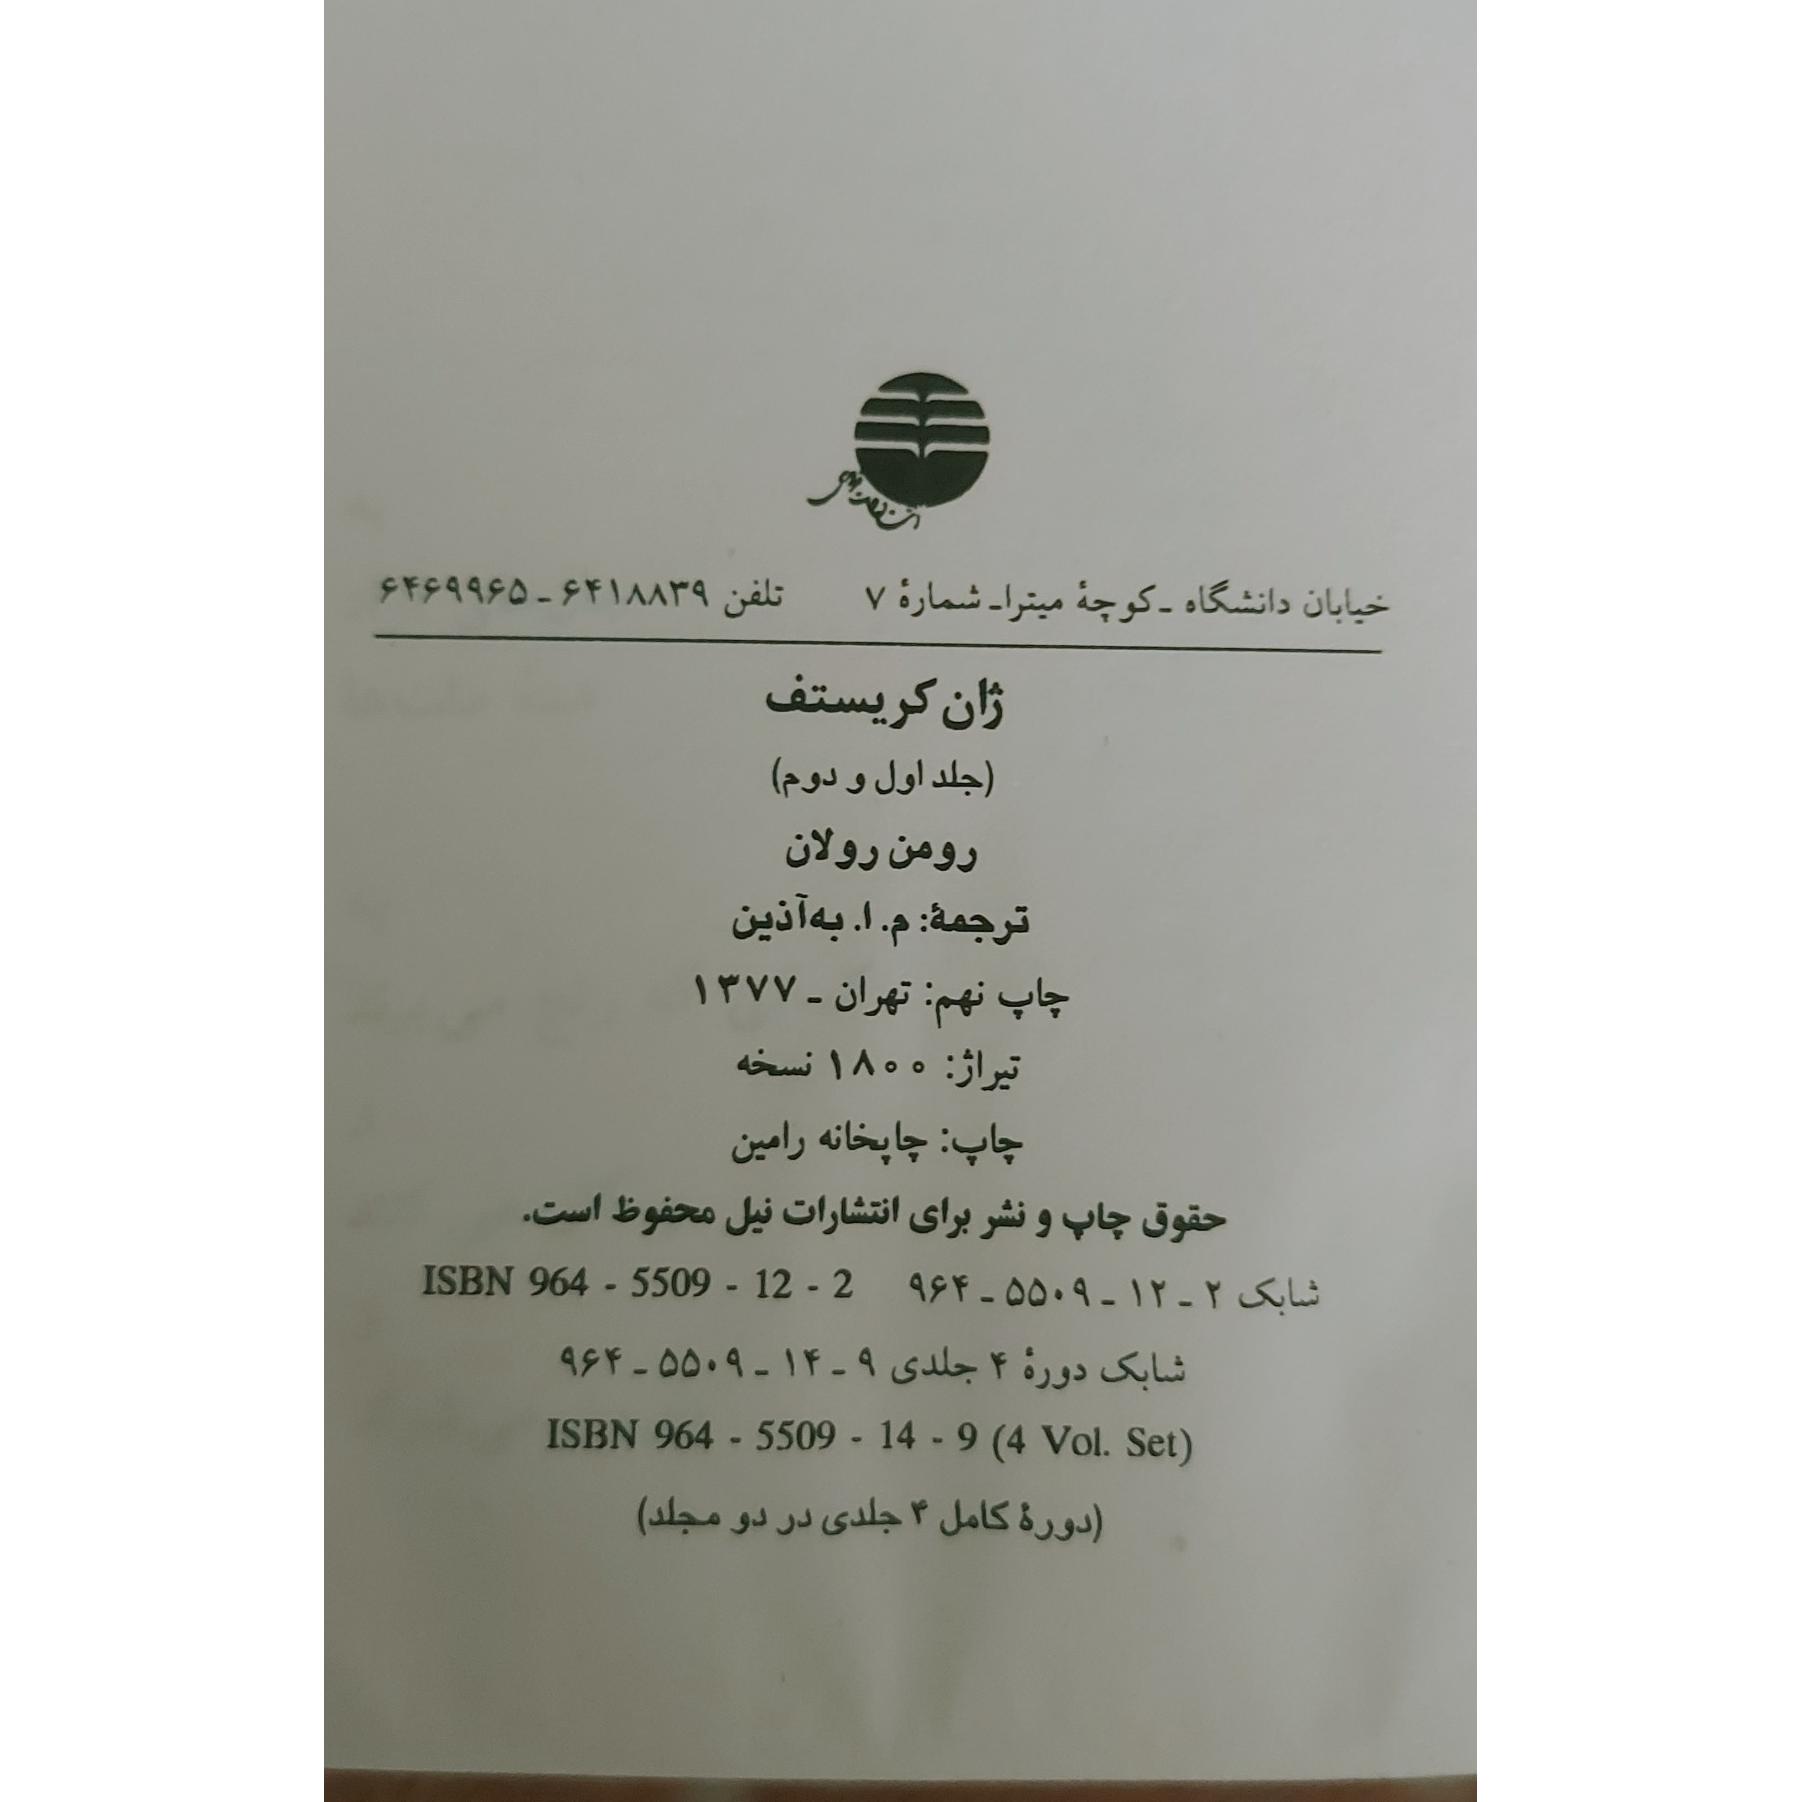 خیابان دانشگاه ـ کوچهٔ میترا ـ شمارهٔ ۷ تلفن ۶۴۱۸۸۳۹ ـ ۶۴۶۹۹۶۵
ژان کریستف
(جلد اول و دوم)
رومن رولان
ترجمهٔ: م. ا. به‌آذین
چاپ نهم: تهران ـ ۱۳۷۷
تیراژ: ۱۸۰۰ نسخه
چاپ: چاپخانه رامین
حقوق چاپ و نشر برای انتشارات نیل محفوظ است.
شابک ۲ ـ ۱۲ ـ ۵۵۰۹ ـ ۹۶۴ ISBN 964 - 5509 - 12 - 2
شابک دورهٔ ۴ جلدی ۹ ـ ۱۴ ـ ۵۵۰۹ ـ ۹۶۴
ISBN 964 - 5509 - 14 - 9 (4 Vol. Set)
(دورهٔ کامل ۴ جلدی در دو مجلد)